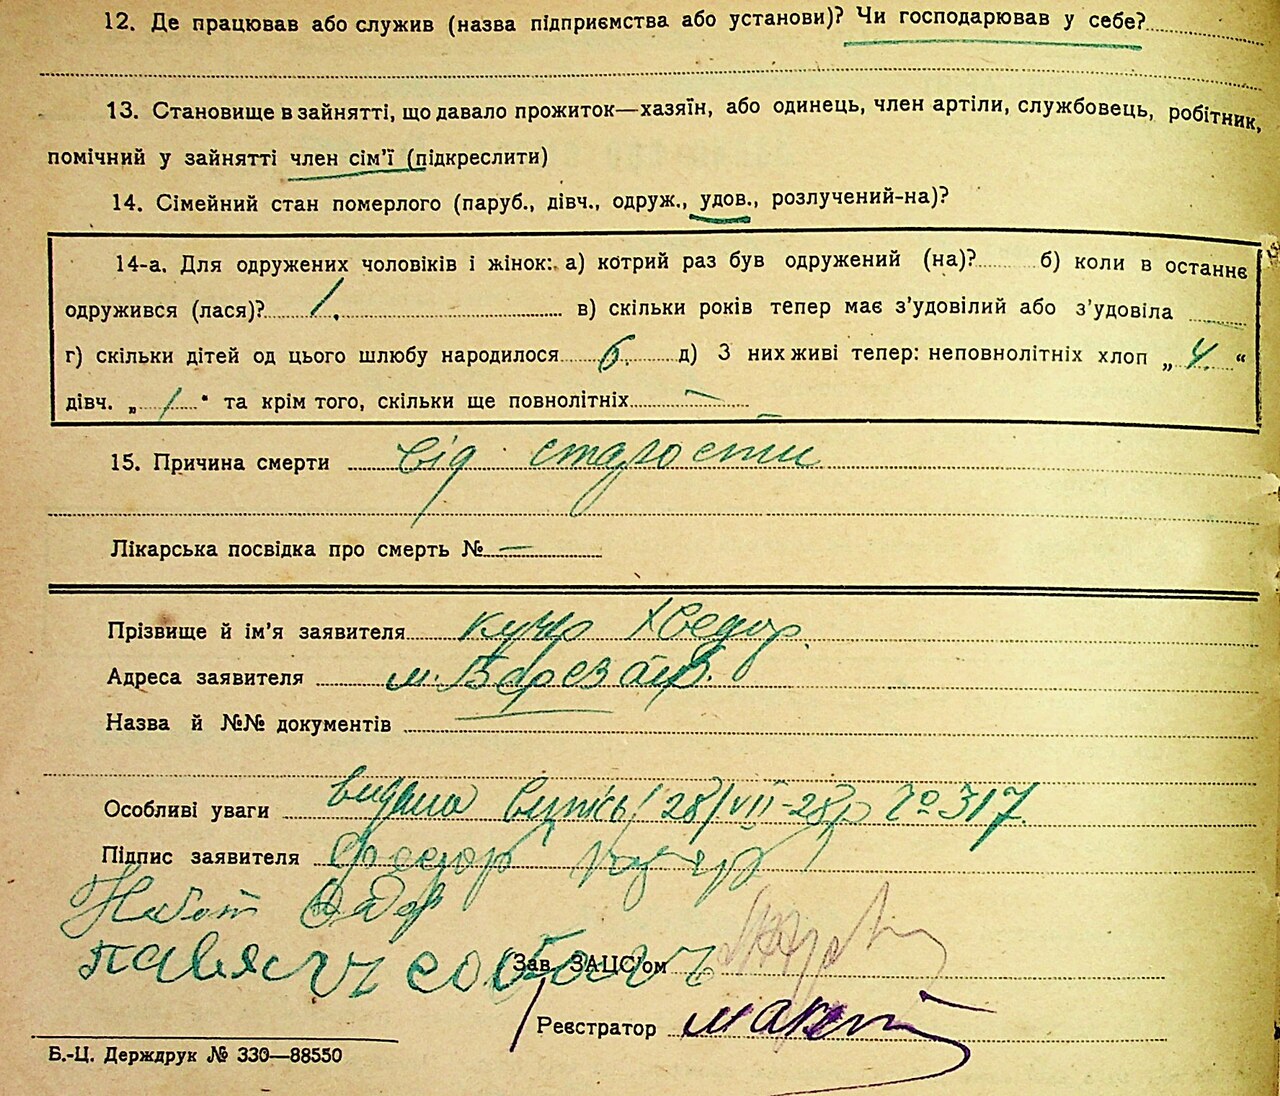 12. Де працював або служив (назва підприємства або установи)? Чи господарював у себе?
13. Становище в зайнятті, що давало прожиток—хазяїн, або одинець, член артіли, службовець, робітник,
помічний у зайнятті член сім'ї (підкреслити)
14. Сімейний стан померлого (паруб., дівч., одруж., удов., розлучений-на)?
14-а. Для одружених чоловіків і жінок: а) котрий раз був одружений (на)? б) коли в останнє
одружився (лася)? 1. в) скільки років тепер має з'удовілий або з'удовіла
г) скільки дітей од цього шлюбу народилося 6. д) З них живі тепер: неповнолітніх хлоп „ 4. “
дівч. „ 1 “ та крім того, скільки ще повнолітніх —
15. Причина смерти від старости
Лікарська посвідка про смерть № —
Прізвище й ім'я заявителя Кучер Хведор.
Адреса заявителя м. Березань.
Назва й №№ документів
Особливі уваги видана випись 28/VII-28р № 317.
Підпис заявителя
Зав. ЗАЦС'ом
Реєстратор
Б.-Ц. Держдрук № 330—88550